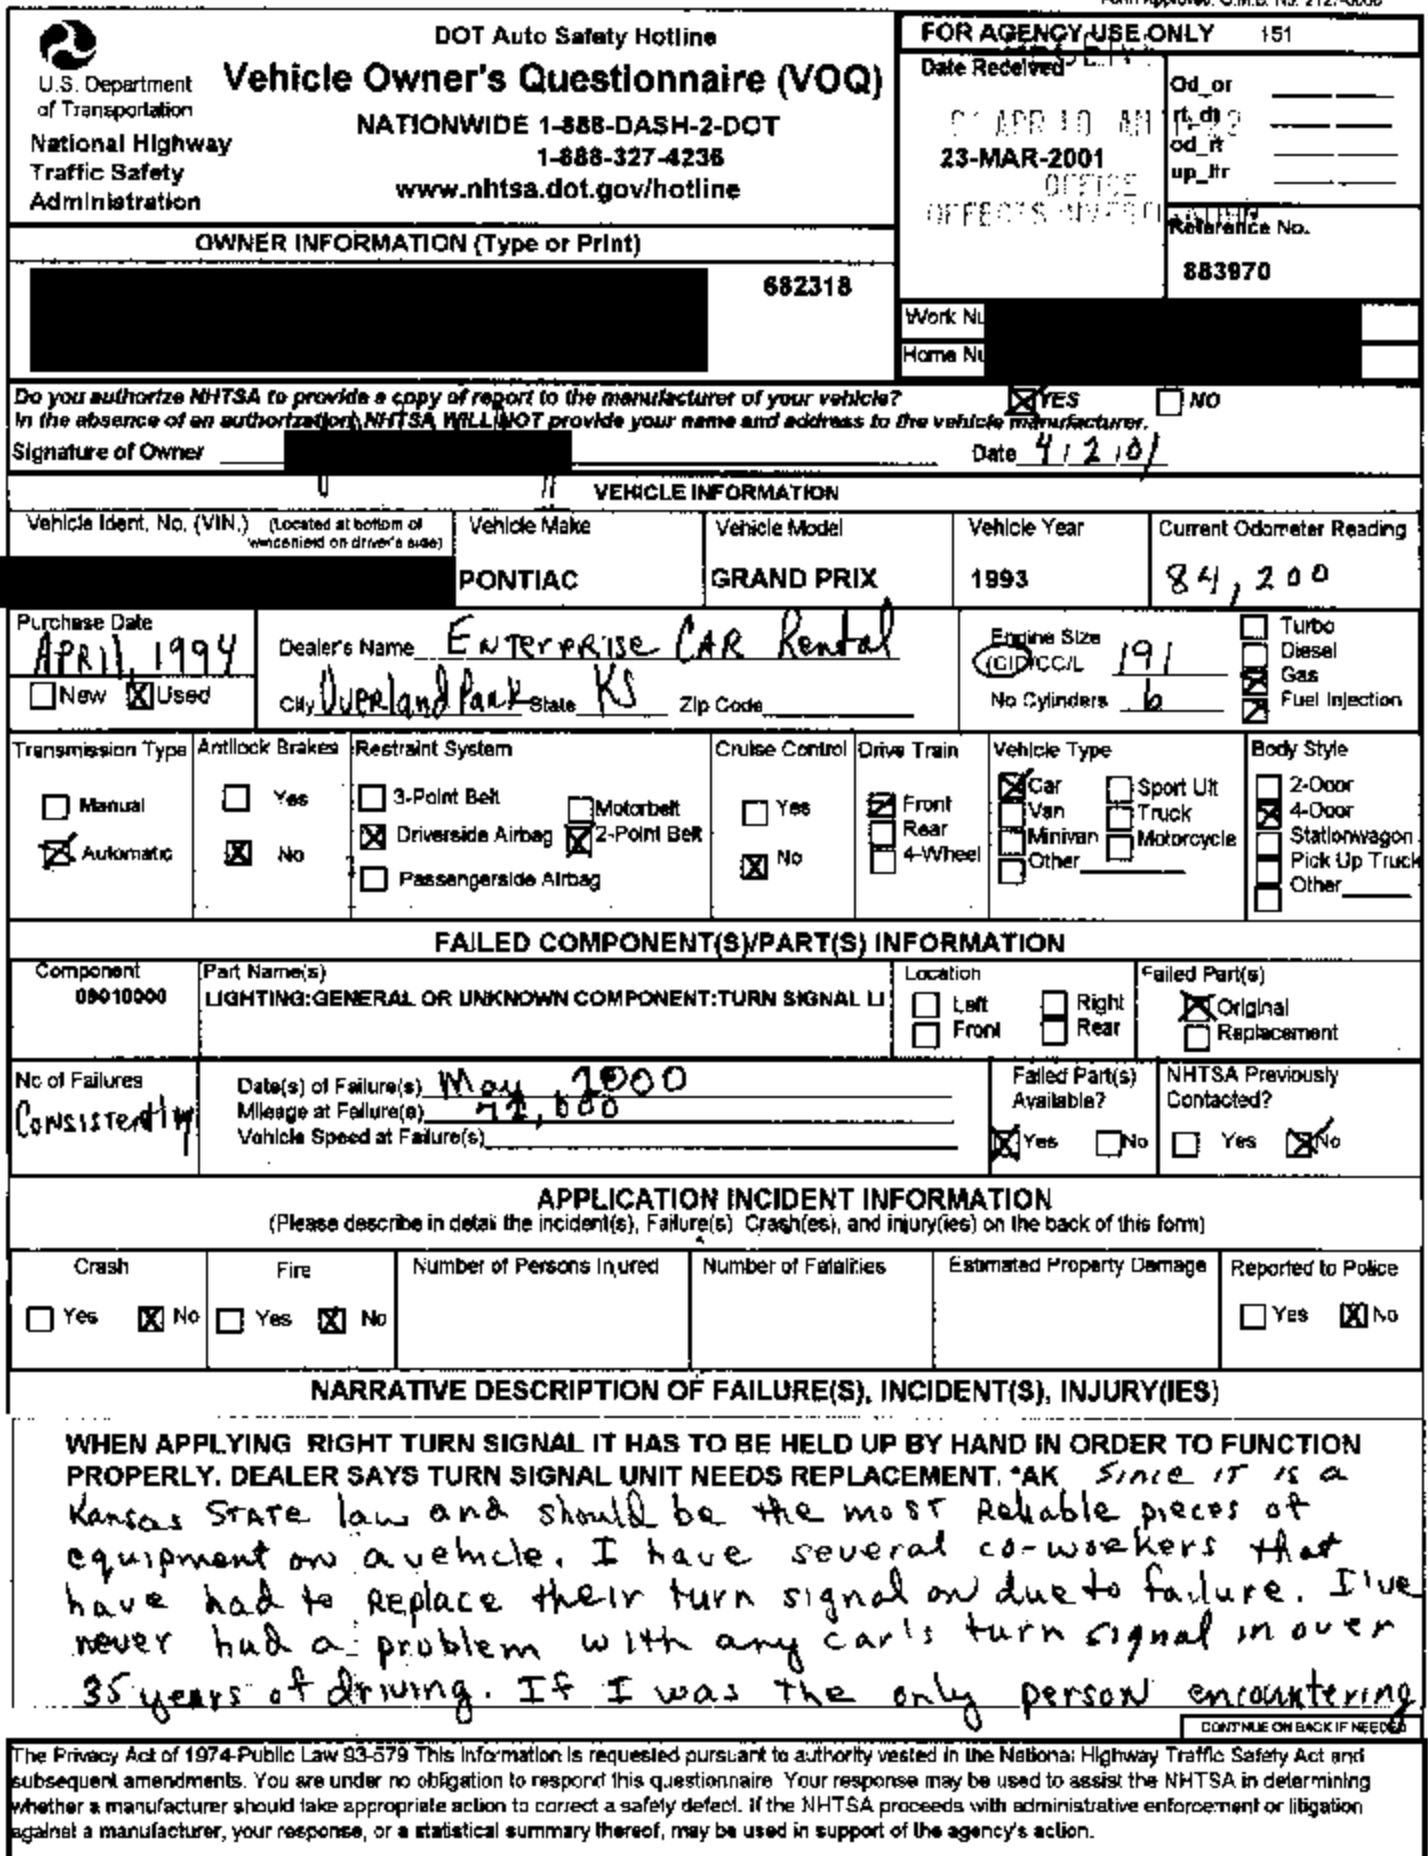 DOT Auto Safety Hotline
Vehicle Owner's Questionnaire (VOQ)
NATIONWIDE 1-888-DASH-2-DOT
1-888-327-4236
www.nhtsa.dot.gov/hotline
U.S. Department
of Transportation
National Highway
Traffic Safety
Administration
FOR AGENCY USE ONLY 151
Date Received
23-MAR-2001
OFFICE
Od_or
rt_dt
od_rt
up_ltr
Reference No.
883970
OWNER INFORMATION (Type or Print)
682318
Work Nu
Home Nu
Do you authorize NHTSA to provide a copy of report to the manufacturer of your vehicle? YES NO
In the absence of an authorization, NHTSA WILL NOT provide your name and address to the vehicle manufacturer.
Signature of Owner Date 4/2/01
VEHICLE INFORMATION
Vehicle Ident. No. (VIN.) (Located at bottom of
windshield on driver's side)
Vehicle Make
PONTIAC
Vehicle Model
GRAND PRIX
Vehicle Year
1993
Current Odometer Reading
84,200
Purchase Date
APRIL, 1994
New Used
Dealer's Name ENTERPRISE CAR Rental
City Overland Park State KS Zip Code
Engine Size
(CID/CC/L 191
No Cylinders 6
Turbo
Diesel
Gas
Fuel Injection
Transmission Type
Manual
Automatic
Antilock Brakes
Yes
No
Restraint System
3-Point Belt
Motorbelt
Driverside Airbag 2-Point Belt
Passengerside Airbag
Cruise Control
Yes
No
Drive Train
Front
Rear
4-Wheel
Vehicle Type
Car Sport Ult
Van Truck
Minivan Motorcycle
Other
Body Style
2-Door
4-Door
Stationwagon
Pick Up Truck
Other
FAILED COMPONENT(S)/PART(S) INFORMATION
Component
Part Name(s)
LIGHTING:GENERAL OR UNKNOWN COMPONENT:TURN SIGNAL LI
Location
Left Right
Front Rear
Failed Part(s)
Original
Replacement
No of Failures
CONSISTENTly
Date(s) of Failure(s) May, 2000
Mileage at Failure(s)
Vehicle Speed at Failure(s)
Failed Part(s)
Available?
Yes No
NHTSA Previously
Contacted?
Yes No
APPLICATION INCIDENT INFORMATION
(Please describe in detail the incident(s), Failure(s) Crash(es), and injury(ies) on the back of this form)
Crash
Yes No
Fire
Yes No
Number of Persons Injured
Number of Fatalities
Estimated Property Damage
Reported to Police
Yes No
NARRATIVE DESCRIPTION OF FAILURE(S), INCIDENT(S), INJURY(IES)
WHEN APPLYING RIGHT TURN SIGNAL IT HAS TO BE HELD UP BY HAND IN ORDER TO FUNCTION
PROPERLY. DEALER SAYS TURN SIGNAL UNIT NEEDS REPLACEMENT. *AK Since IT is a
Kansas STATE law and should be the most Reliable pieces of
equipment on a vehicle. I have several co-workers that
have had to Replace their turn signal on due to failure. I've
never had a problem with any car's turn signal in over
35 years of driving. If I was the only person encountering
CONTINUE ON BACK IF NEEDED
The Privacy Act of 1974-Public Law 93-579 This information is requested pursuant to authority vested in the National Highway Traffic Safety Act and
subsequent amendments. You are under no obligation to respond this questionnaire Your response may be used to assist the NHTSA in determining
whether a manufacturer should take appropriate action to correct a safety defect. If the NHTSA proceeds with administrative enforcement or litigation
against a manufacturer, your response, or a statistical summary thereof, may be used in support of the agency's action.